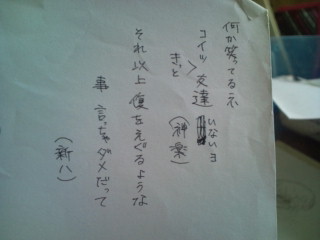 何か笑ってるネ
コイツきっと友達いないヨ
(神楽)
それ以上傷をえぐるような
事言っちゃダメだって
(新八)